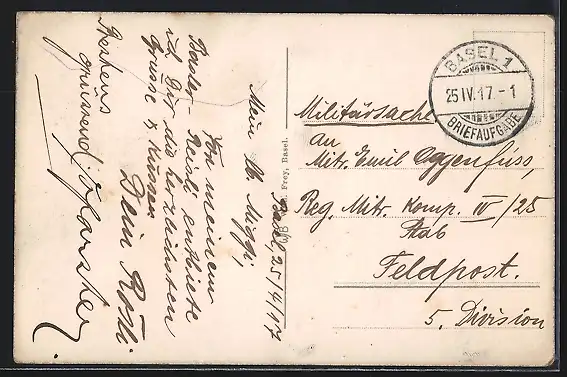 Basel 25/4/17
Mein lb. Miggi,
Von meinem
Basler-Reisli entbiete
ich Dir die herzlichsten
Grüsse & Küssen
Dein Rösli
Bestens
grüssend
Frey, Basel.
BASEL 1
25 IV. 17. - 1
BRIEFAUFGABE
Militärsache
an
Mitr. Emil Oggenfuss,
Reg. Mitr. Komp. IV / 25
Stab
Feldpost.
5. Division